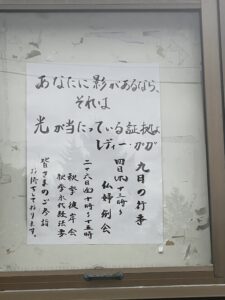 あなたに影があるなら、
それは
光が当たっている証拠よ
レディー・ガガ
九月の行事
四日(水)十三時〜
仏婦例会
二十六日(木)十時〜十五時
秋季彼岸会
秋季永代経法要
皆さまのご参詣
お待ちしております。